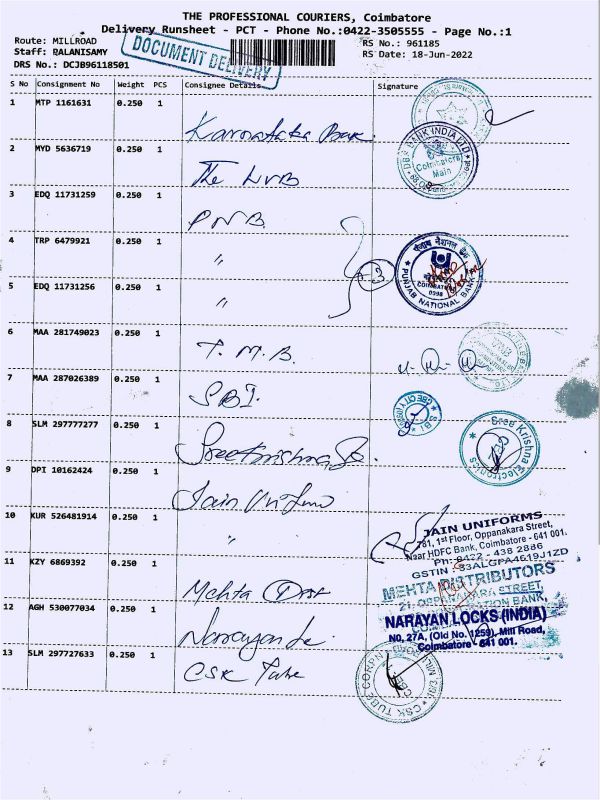 THE PROFESSIONAL COURIERS, Coimbatore
Delivery Runsheet - PCT - Phone No.:0422-3505555 - Page No.:1
Route: MILLROAD
RS No.: 961185
Staff: PALANISAMY
RS Date: 18-Jun-2022
DRS No.: DCJB96118501
DOCUMENT DELIVERY
S No Consignment No Weight PCS Consignee Details Signature
1 MTP 1161631 0.250 1
Karnataka Bank
2 MYD 5636719 0.250 1
DBS BANK INDIA LTD
Coimbatore
Main
The LVB
3 EDQ 11731259 0.250 1
PNB
4 TRP 6479921 0.250 1
"
3
पंजाब नैशनल बैंक
PUNJAB NATIONAL BANK
COIMBATORE
0398
5 EDQ 11731256 0.250 1
"
6 MAA 281749023 0.250 1
T.M.B.
7 MAA 287026389 0.250 1
SBI
SBI
8 SLM 297777277 0.250 1
Sree Krishna
Sree Krishna Electronics
9 DPI 10162424 0.250 1
Jain Uniform
10 KUR 526481914 0.250 1
"
JAIN UNIFORMS
781, 1st Floor, Oppanakara Street,
Near HDFC Bank, Coimbatore - 641 001.
Ph: 0422 - 438 2886
GSTIN : 33ALGPA4619J1ZD
11 KZY 6869392 0.250 1
Mehta Dist
MEHTA DISTRIBUTORS
STREET,
BANK,
12 AGH 530077034 0.250 1
Narayan Lo
NARAYAN LOCKS (INDIA)
NO, 27A, (Old No. 1259), Mill Road,
Coimbatore - 641 001.
13 SLM 297727633 0.250 1
CSK Tube
CSK TUBE CORPN